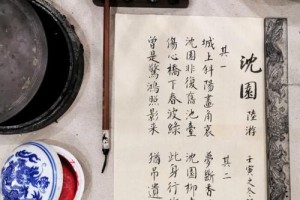 沈園
陸游
壬寅之冬
其一
城上斜陽畫角哀
沈園非復舊池臺
傷心橋下春波綠
曾是驚鴻照影來
其二
夢斷香
沈園柳
此身行
猶吊遺